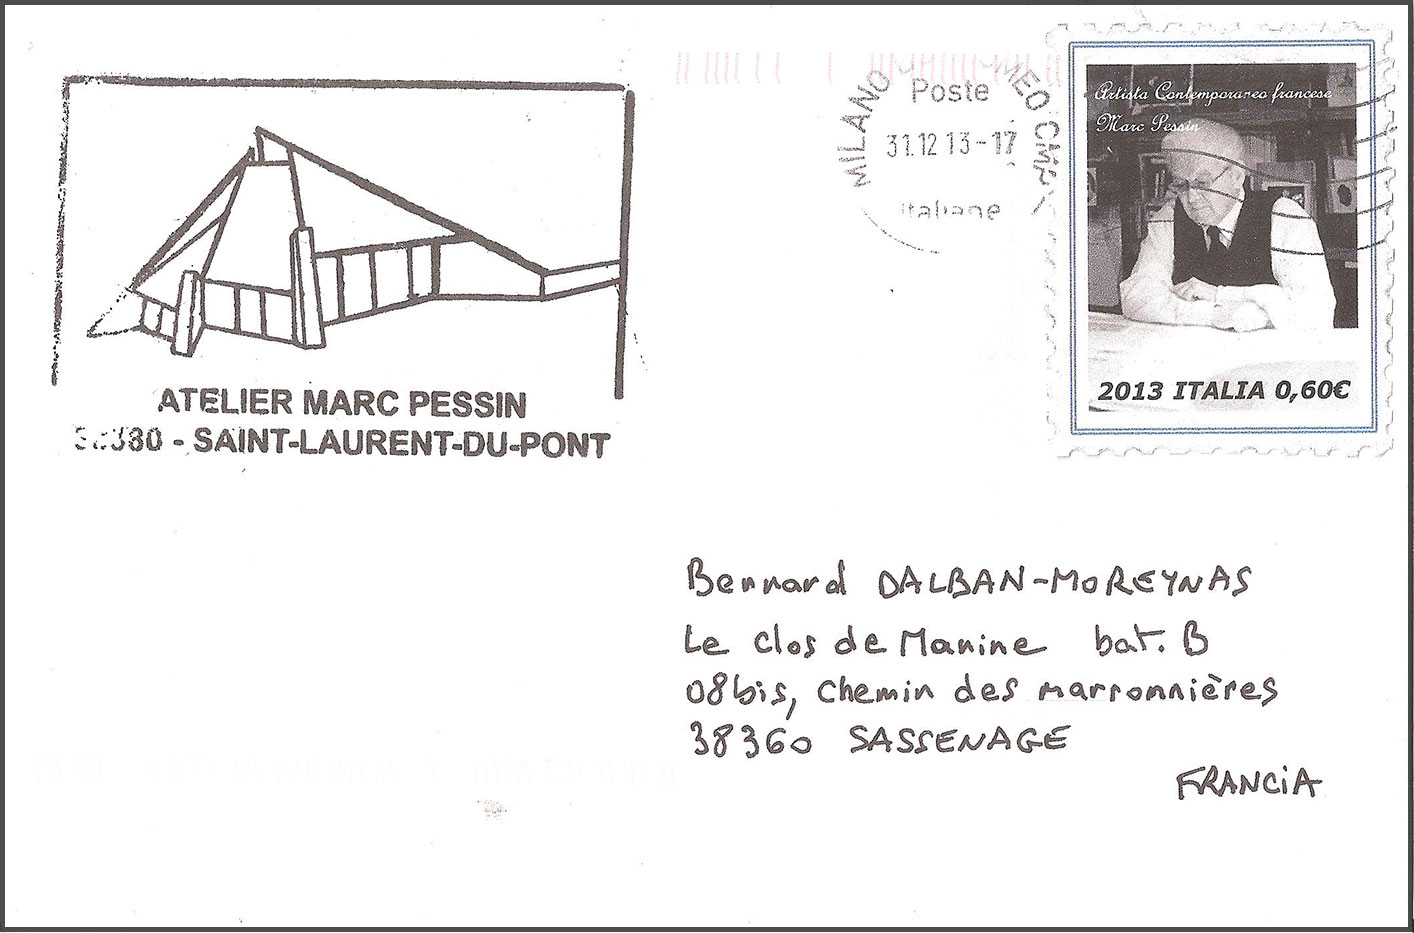 ATELIER MARC PESSIN
38380 - SAINT-LAURENT-DU-PONT
MILANO
Poste
31.12 13-17
italiane
Artista Contemporaneo francese
Marc Pessin
2013 ITALIA 0,60€
Bernard DALBAN-MOREYNAS
Le Clos de Manine bat. B
08bis, Chemin des marronnières
38360 SASSENAGE
FRANCIA